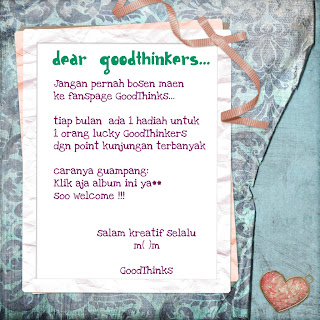 dear goodthinkers...
Jangan pernah bosen maen
ke fanspage GoodThinks...
tiap bulan ada 1 hadiah untuk
1 orang lucky GoodThinkers
dgn point kunjungan terbanyak
caranya guampang:
Klik aja album ini ya**
soo welcome !!!
salam kreatif selalu
m( )m
GoodThinks